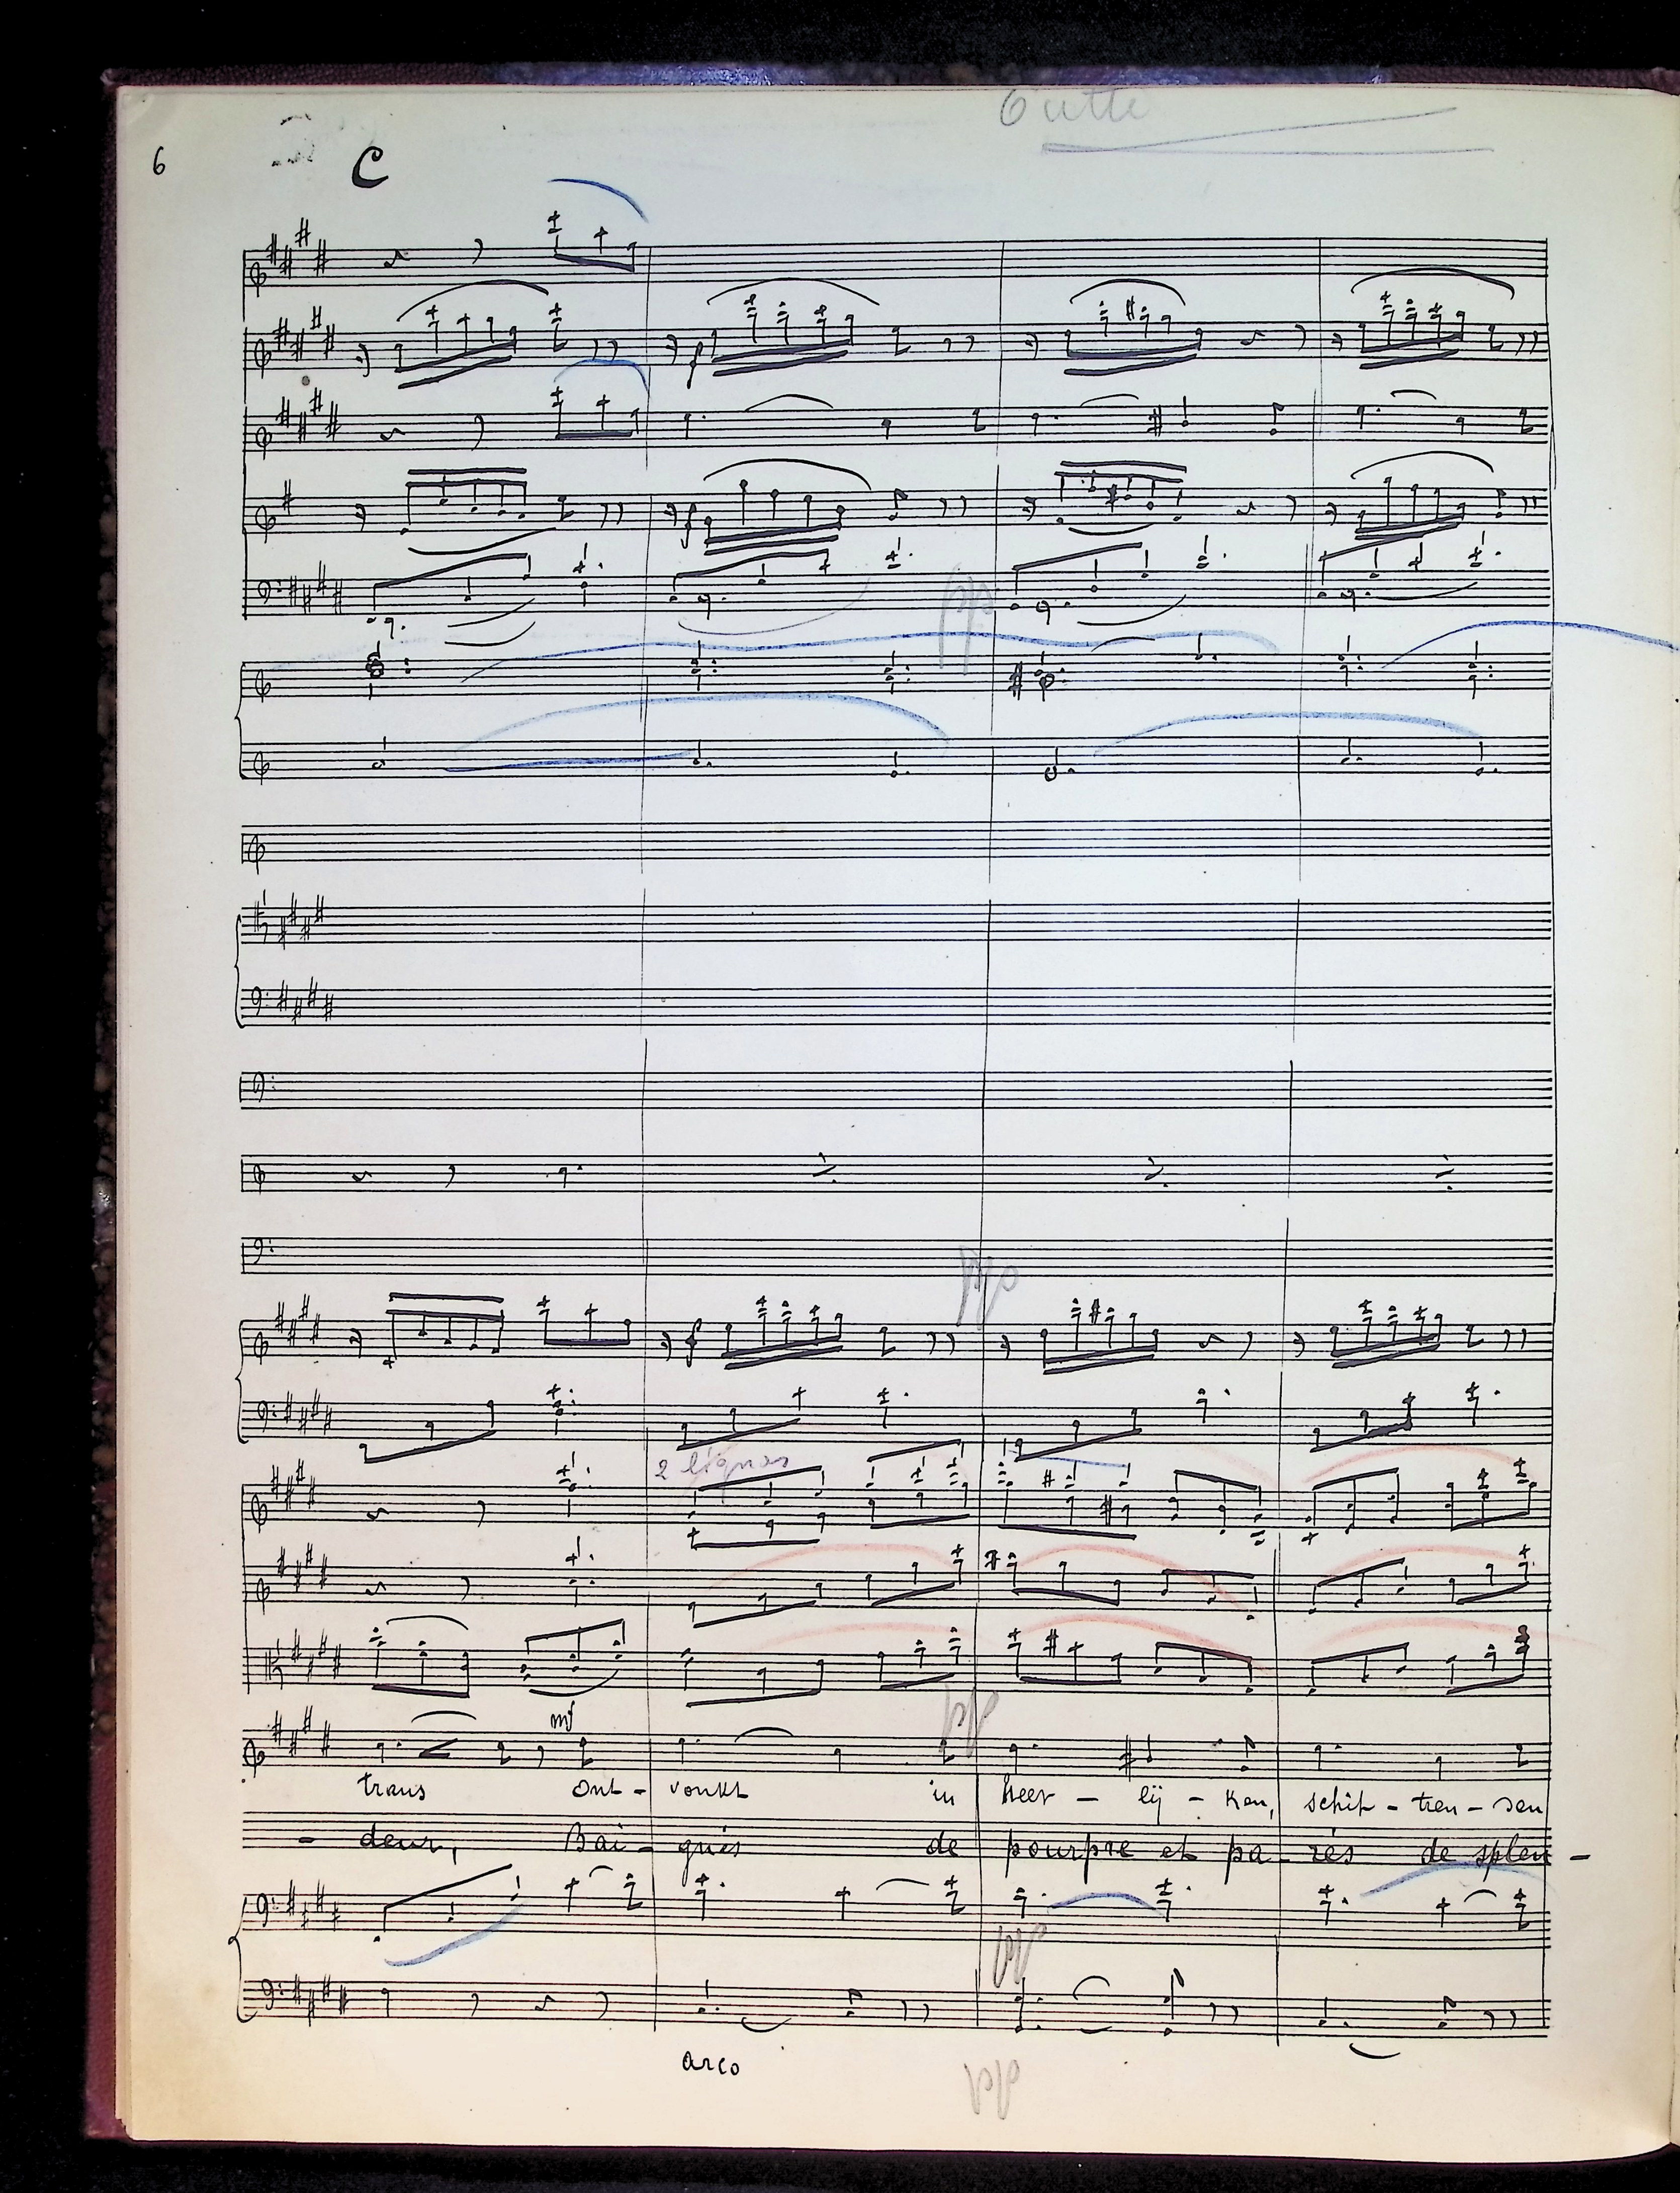 6
C
2 lignes
mf
trans ont- vonkt in heer - lij - ken, schit - tren - den
- deur, Bai - gnés de pourpre et pa - rés de splen -
arco